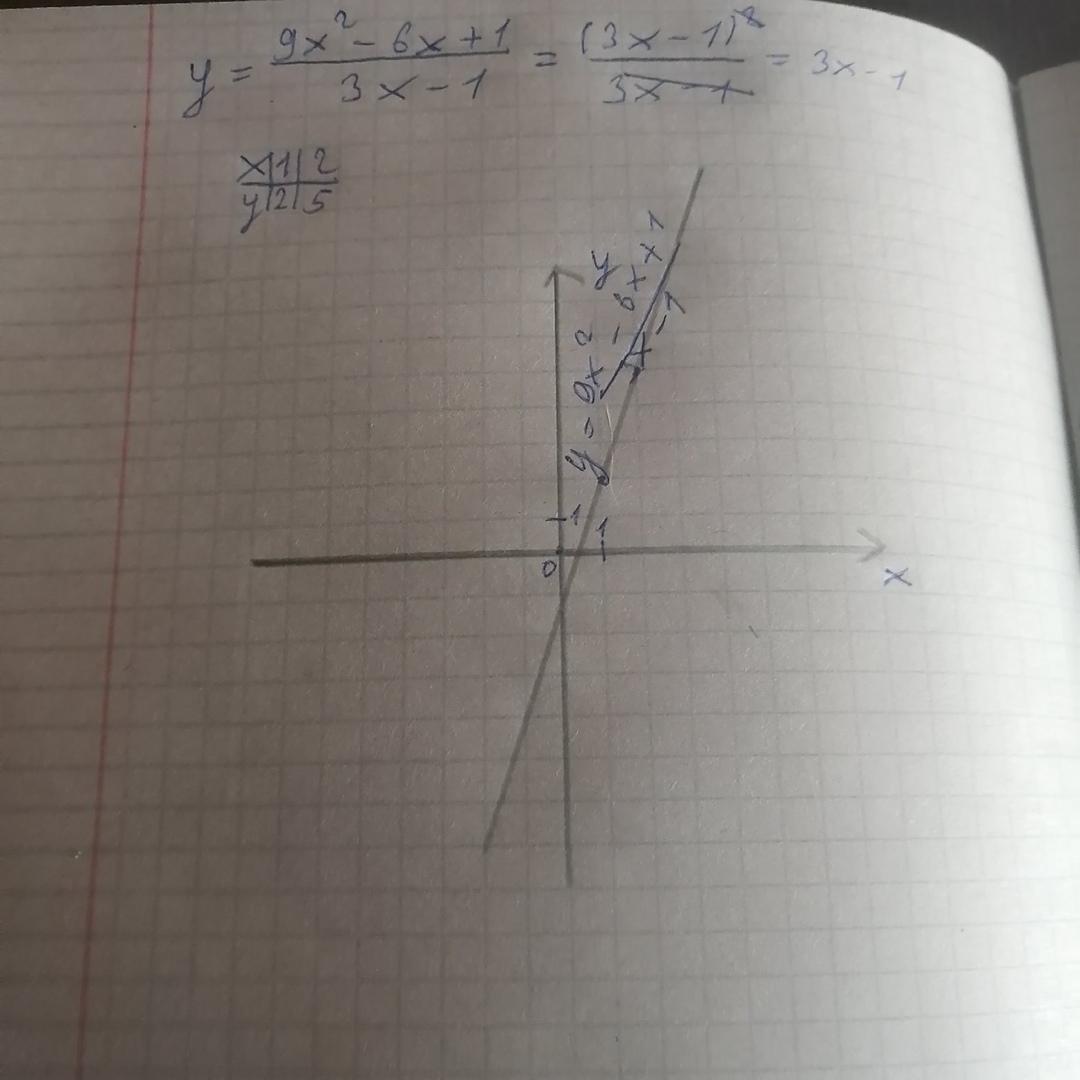 y = 9x² - 6x + 1 / 3x - 1 = (3x - 1)² / 3x - 1 = 3x - 1
x | 1 | 2
y | 2 | 5
y
y = 9x² - 6x x 1 / x - 1
1
1
0
x